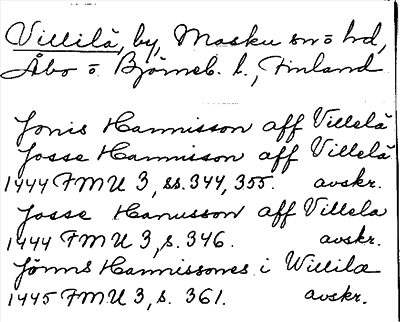 Villilä, by, Masku sn o hd,
Åbo o. Björneb. l., Finland
Jonis Hannisson aff Villelä
Josse Hannisson aff Villelä
1444 FMU 3, ss. 344, 355. avskr.
Josse Hanusson aff Villela
1444 FMU 3, s. 346. avskr.
Jönns Hannissones i Willilæ
1445 FMU 3, s. 361. avskr.